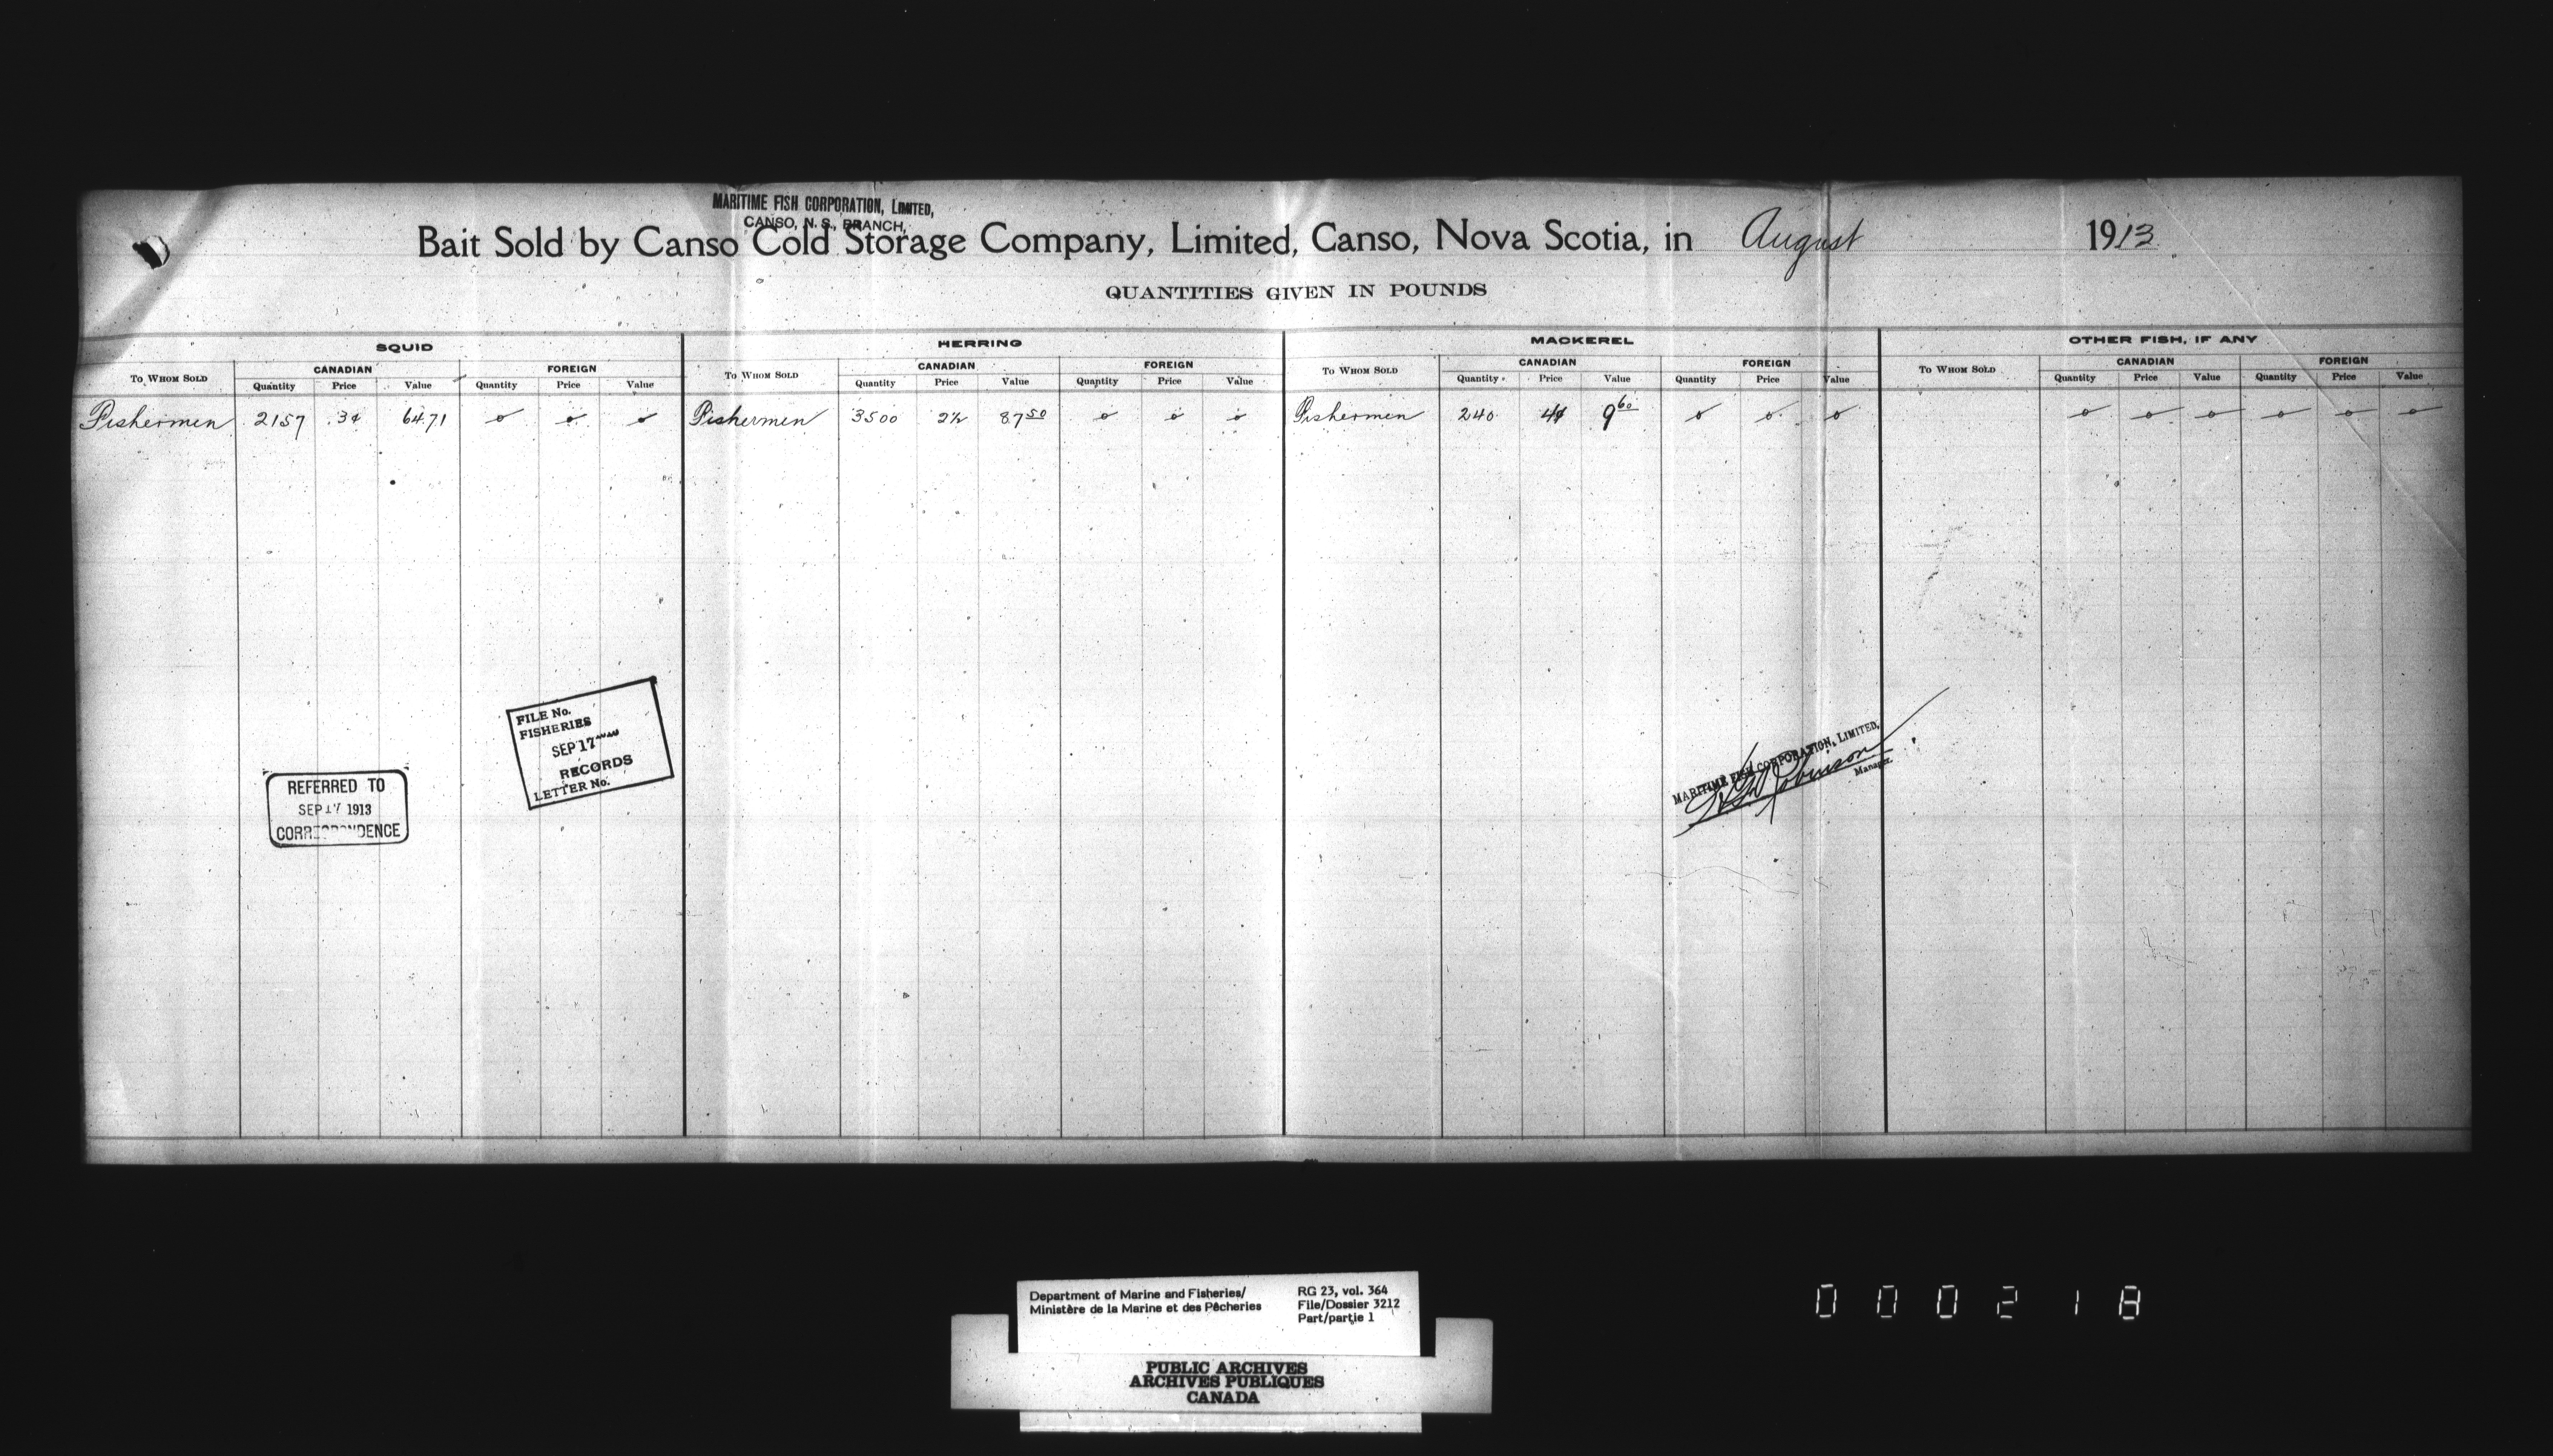 MARITIME FISH CORPORATION, LIMITED,
CANSO, N. S., BRANCH,
Bait Sold by Canso Cold Storage Company, Limited, Canso, Nova Scotia, in August 1913
QUANTITIES GIVEN IN POUNDS
SQUID HERRING MACKEREL OTHER FISH, IF ANY
TO WHOM SOLD CANADIAN FOREIGN TO WHOM SOLD CANADIAN FOREIGN TO WHOM SOLD CANADIAN FOREIGN TO WHOM SOLD CANADIAN FOREIGN
Quantity Price Value Quantity Price Value Quantity Price Value Quantity Price Value Quantity Price Value Quantity Price Value Quantity Price Value Quantity Price Value
Fishermen 2157 3¢ 64.71 0 0 0 Fishermen 3500 2½ 87 50 0 0 0 Fishermen 240 4¢ 9 60 0 0 0 0 0 0 0 0 0
FILE No.
FISHERIES
SEP 17
RECORDS
LETTER No.
REFERRED TO
SEP 17 1913
CORRESPONDENCE
MARITIME FISH CORPORATION, LIMITED,
Robinson
Manager.
Department of Marine and Fisheries/
Ministère de la Marine et des Pêcheries
RG 23, vol. 364
File/Dossier 3212
Part/partie 1
PUBLIC ARCHIVES
ARCHIVES PUBLIQUES
CANADA
000218